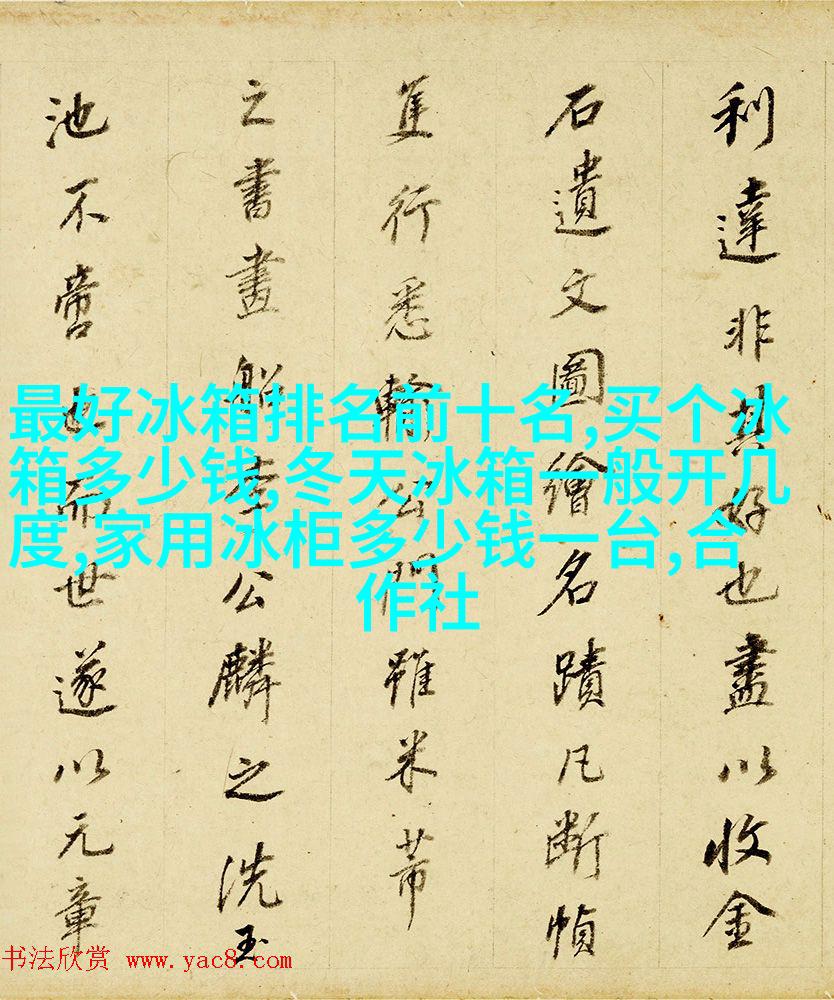 利達非其好也盡以收金
石遺文圖繪名蹟凡断幀
隻行悉輸公門雖米芾
之書畫船李公麟之洗玉
池不啻也而世遂以元章
最好冰箱排名前十名,买个冰
箱多少钱,冬天冰箱一般开几
度,家用冰柜多少钱一台,合
作社
书法欣赏 www.yac8.com